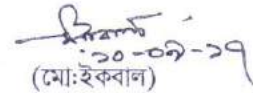 ২০-০৯-১৭
(মো:ইকবাল)